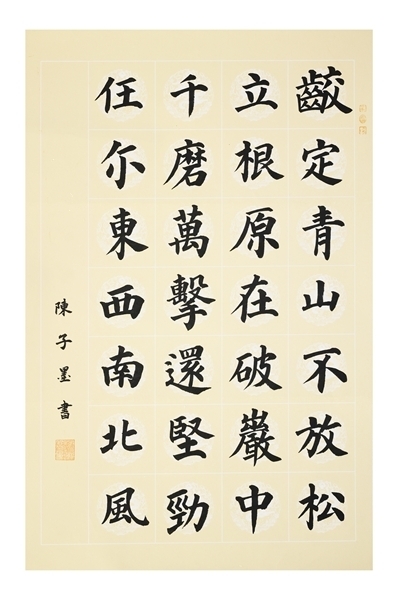 齩定青山不放松
立根原在破巖中
千磨萬擊還堅勁
任尓東西南北風
陳子墨書